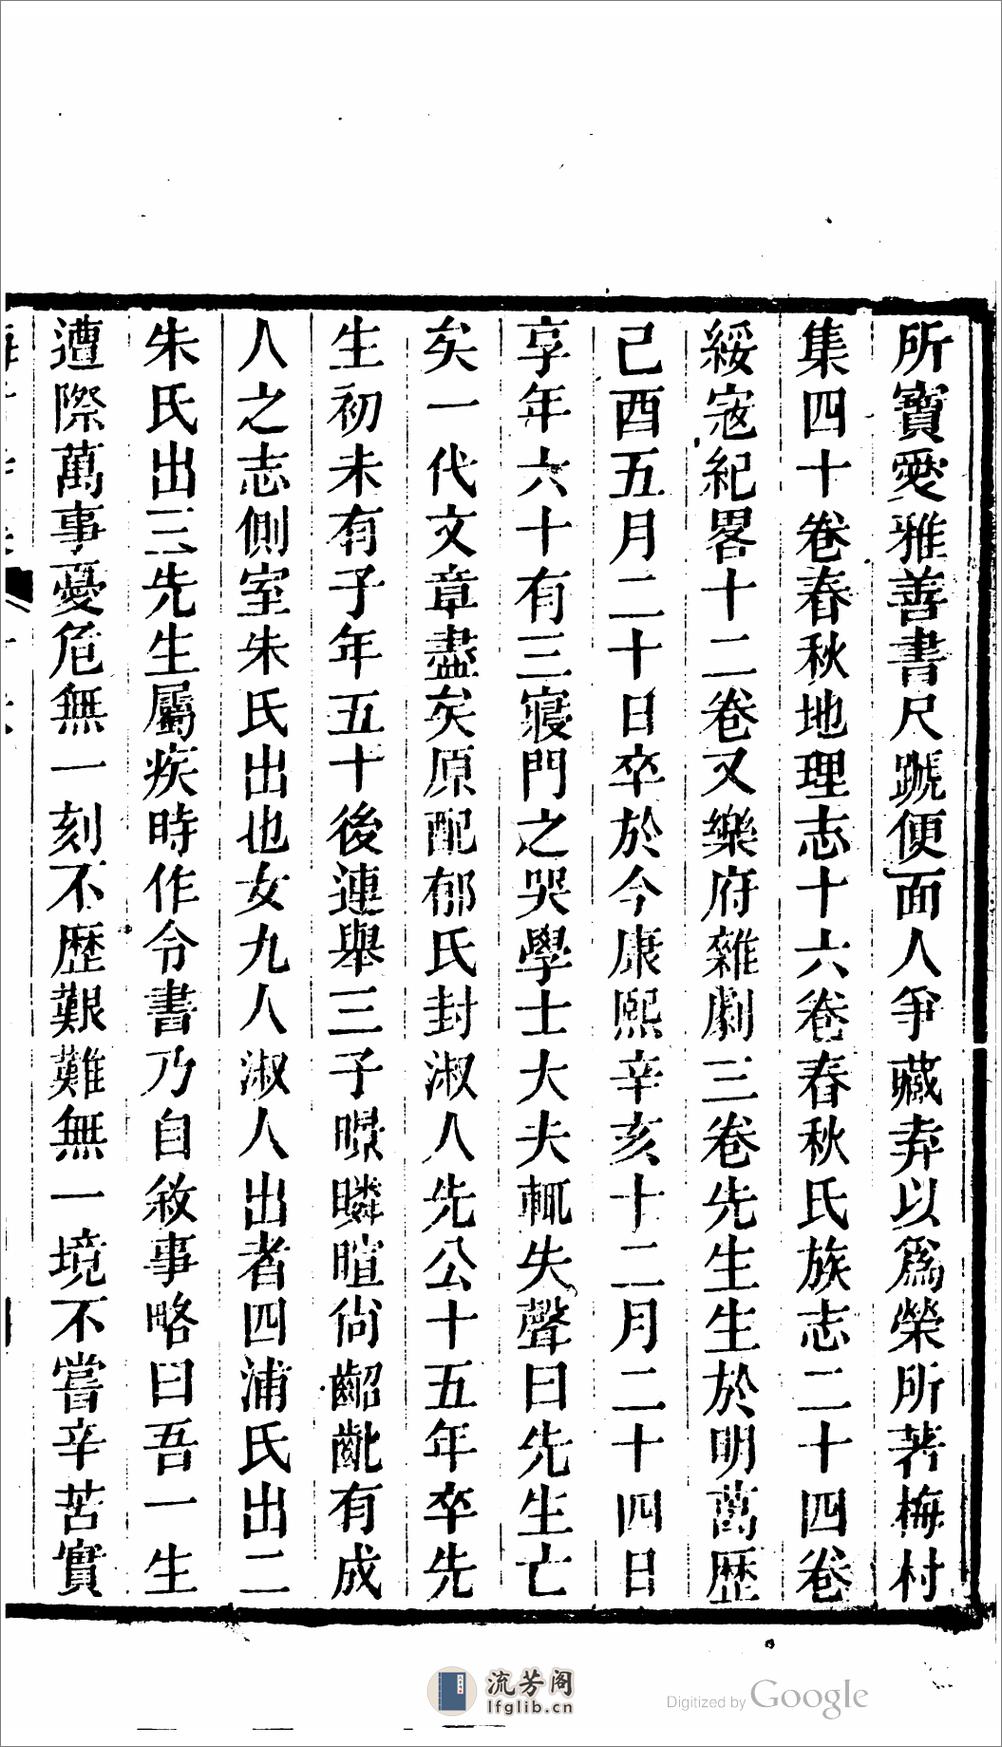 所寶愛雅善書尺蹏便面人爭藏弆以爲榮所著梅村
集四十卷春秋地理志十六卷春秋氏族志二十四卷
綏寇紀畧十二卷又樂府雜劇三卷先生生於明萬歷
己酉五月二十日卒於今康熙辛亥十二月二十四日
享年六十有三寢門之哭學士大夫輒失聲曰先生亡
矣一代文章盡矣原配郁氏封淑人先公十五年卒先
生初未有子年五十後連舉三子暻暽暄尙齠齔有成
人之志側室朱氏出也女九人淑人出者四浦氏出二
朱氏出三先生屬疾時作令書乃自敘事略曰吾一生
遭際萬事憂危無一刻不歷艱難無一境不嘗辛苦實
流芳阁
lfglib.cn
Digitized by Google